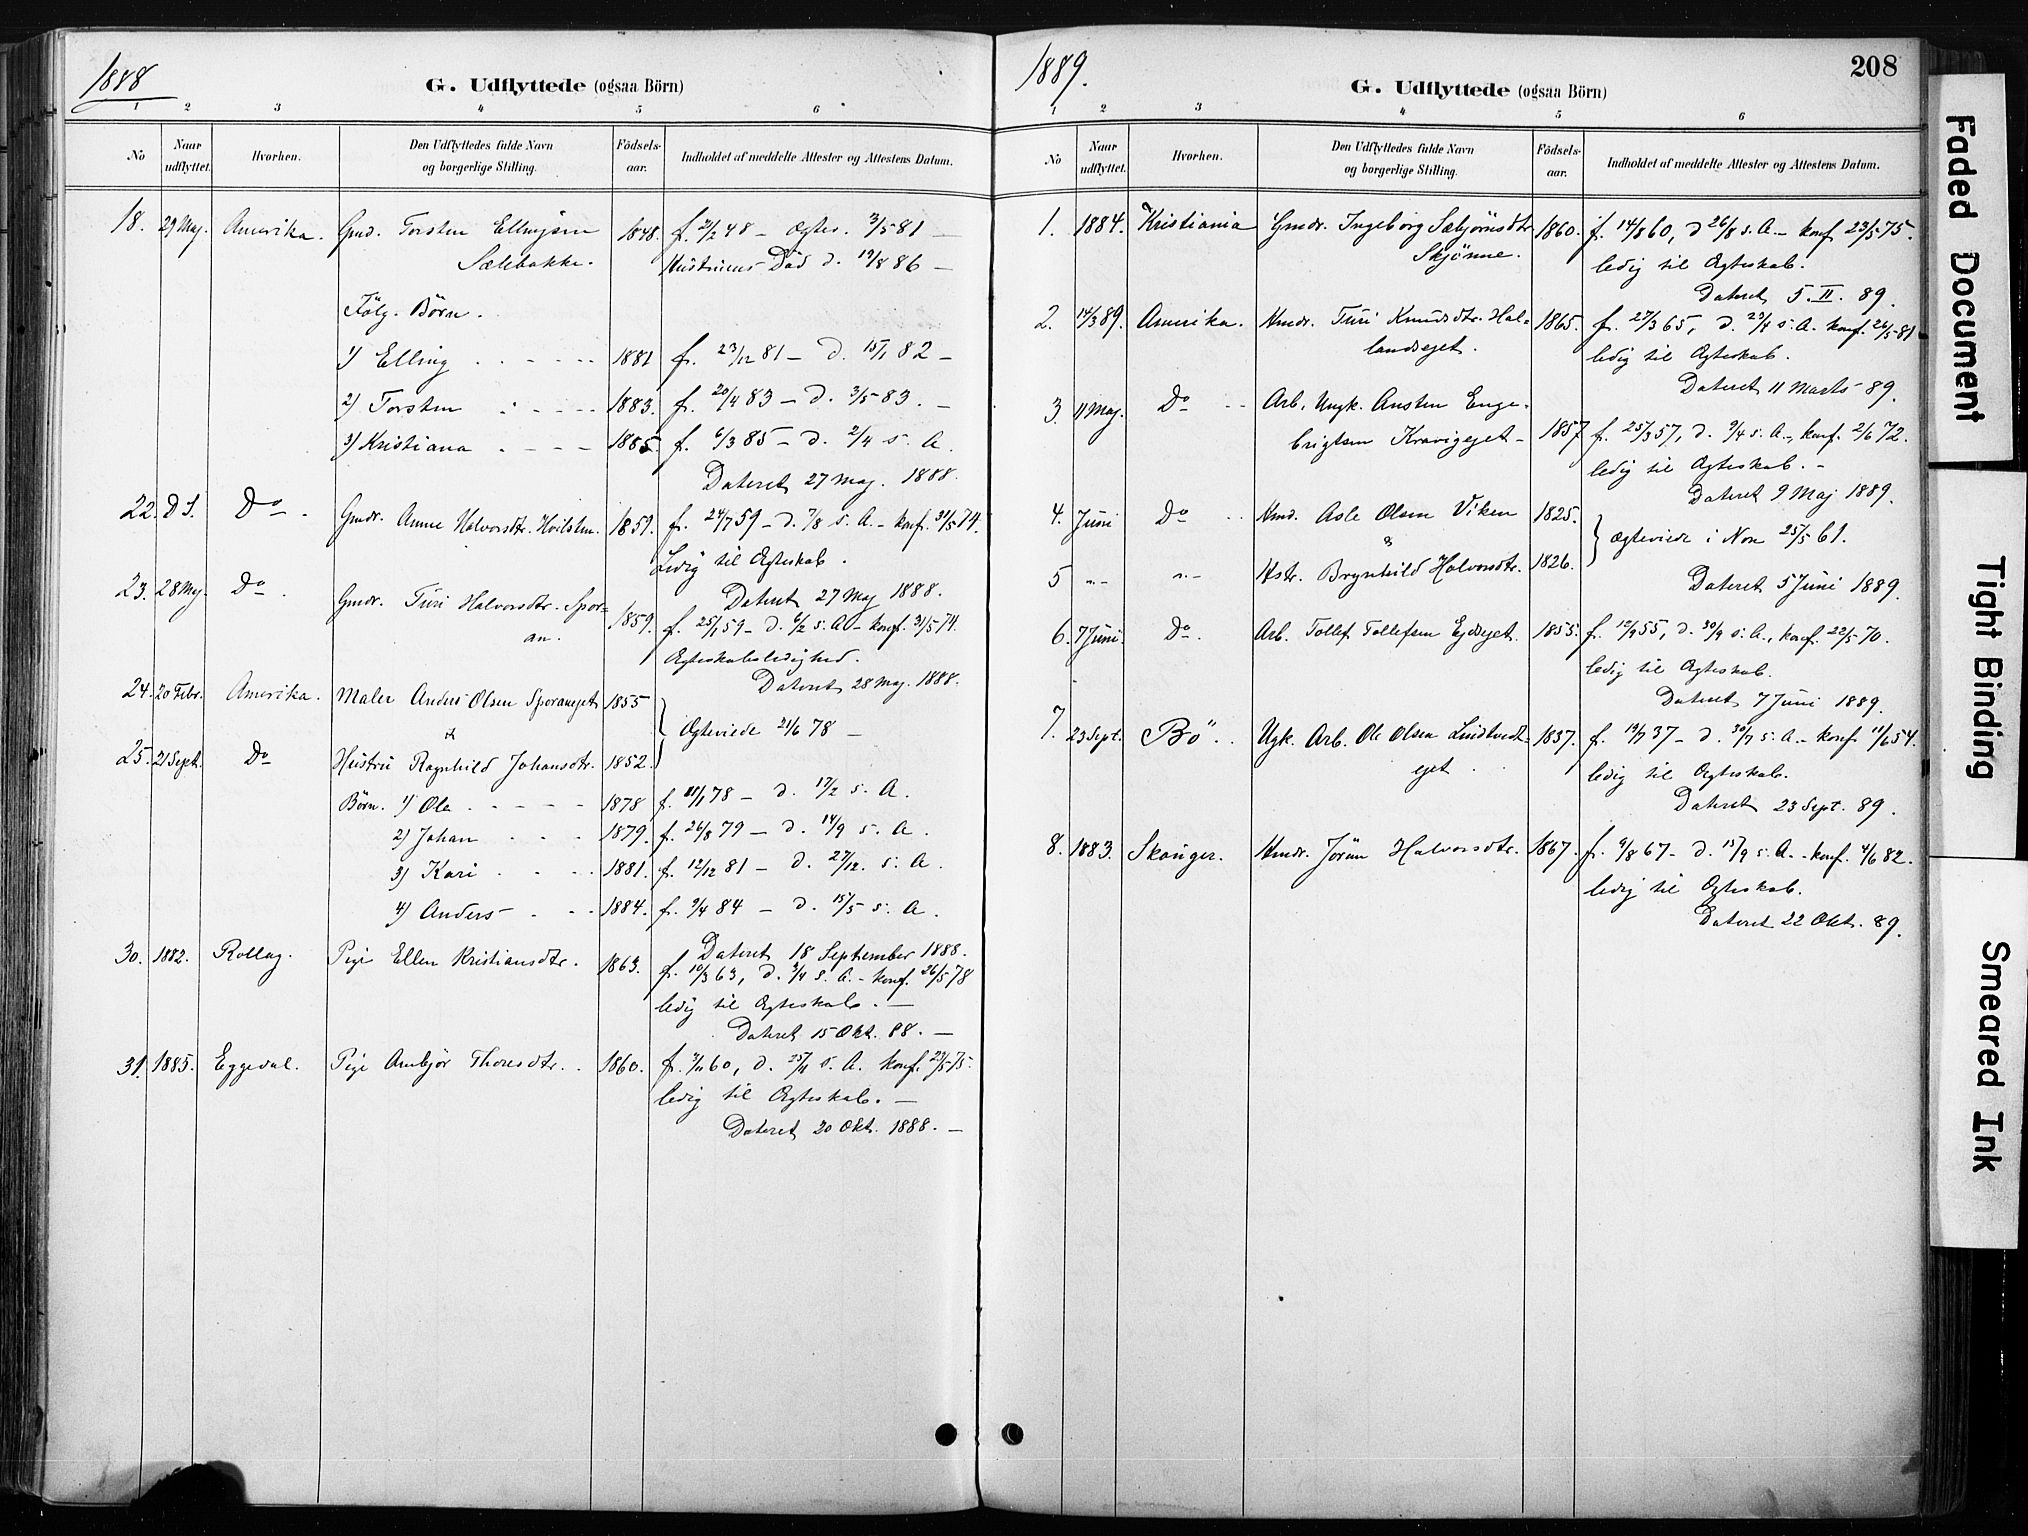 1888
G. Udflyttede (ogsaa Börn)
1 2 3 4 5 6
No
Naar udflyttet.
Hvorhen.
Den Udflyttedes fulde Navn og borgerlige Stilling.
Födsels-aar.
Indholdet af meddelte Attester og Attestens Datum.
18. 29 Maj. Amerika. Gmd. Torsten Ellingsen 1848. f. 48 – Ægtev. 3/5 81 –
Sælebakke. Hustruens Död d. 19/8 86 –
Fölg. Börn.
1) Elling 1881 f. 23/12 81 – d. 15/1 82 –
2) Torsten 1883. f. 20/4 83 – d. 3/5 83. –
3) Kristiana 1885. f. 6/3 85 – d. 2/4 s. A.
Dateret 27 Maj. 1888.
22. D S. Do. Gmdr. Anne Halvorsdtr. Hvilsten. 1859. f. 24/7 59 – d. 7/8 s. A. – konf. 31/5 74.
Ledig til Ægteskab.
Dateret 27 Maj 1888.
23. 28 Maj. Do. Gmdr. Turi Halvorsdtr. Spor= 1859. f. 25/1 59 – d. 6/2 s. A. – konf. 31/5 74.
an. Ægteskabsledighed.
Dateret 28 Maj. 1888.
24. 20 Febr. Amerika. Maler Anders Olsen Sporaneget 1855
& Ægteviede 21/6 78 –
25. 21 Sept. Do Hustru Ragnhild Johansdtr. 1852.
Börn. 1) Ole 1878 f. 11/1 78 – d. 17/2 s. A.
2) Johan 1879. f. 26/8 79 – d. 14/9 s. A.
3) Kari 1881. f. 12/12 81 – d. 27/12. s. A.
4) Anders 1884. f. 9/4 84 – d. 15/5 s. A.
Dateret 18 September 1888.
30. 1882. Rollag. Pige Ellen Kristiansdtr. 1863. f. 10/3 63, d. 3/4 s. A. – konf. 26/5 78
ledig til Ægteskab. –
Dateret 15 Okt. 88. –
31. 1885. Eggedal. Pige Ambjör Thoresdtr. 1860. f. 60, d. 25/11 s. A. konf. 23/5 75.
ledig til Ægteskab. –
Dateret 20 Okt. 1888. –
1889.
G. Udflyttede (ogsaa Börn)
208
1 2 3 4 5 6
No
Naar udflyttet.
Hvorhen.
Den Udflyttedes fulde Navn og borgerlige Stilling.
Födsels-aar.
Indholdet af meddelte Attester og Attestens Datum.
1. 1884. Kristiania Gmdr. Ingeborg Sæbjörnsdtr 1860. f. 14/8 60, d 26/8 s. A. – konf 23/5 75.
Skjönne. ledig til Ægteskab.
Dateret 5. II. 89.
2. 14/3 89. Amerika. Hmdr. Turi Knudsdtr. Hal= 1865. f. 27/3 65, d. 23/4 s. A. konf. 26/5 81
landseget. ledig til Ægteskab.
Dateret 11 Marts 89.
3. 11 Maj. Do Arb. Ungk. Ansten Enge=
brigtsen Kravigeget 1857 f. 25/3 57, d. 9/4 s. A., konf. 2/6 72.
ledig til Ægteskab. –
Dateret 9 Maj 1889.
4. Juni Do Hmd. Asle Olsen Viken 1825.
& Ægteviede i Nore 25/5 61.
5 "– "– Hstr. Brynhild Halvorsdtr. 1826.
Dateret 5 Juni 1889.
6. 7 Juni. Do. Arb. Tollef Tollefsen Ejdseget. 1855. f. 12/9 55, d. 30/9 s. A., konf. 22/5 70.
ledig til Ægteskab.
Dateret 7 Juni 1889.
7. 23 Sept. Bö. Ugk. Arb. Ole Olsen Lindtvedt- 1837. f. 19/7 37 – d. 30/7 s. A. – konf. 11/6 54.
eget. ledig til Ægteskab.
Dateret 23 Sept. 89.
8. 1883. Skouger. Hmdr. Jorun Halvorsdtr. 1867. f. 9/8 67 – d. 15/9 s. A. – konf. 4/6 82.
ledig til Ægteskab.
Dateret 22 Okt. 89.
Faded Document
Tight Binding
Smeared Ink